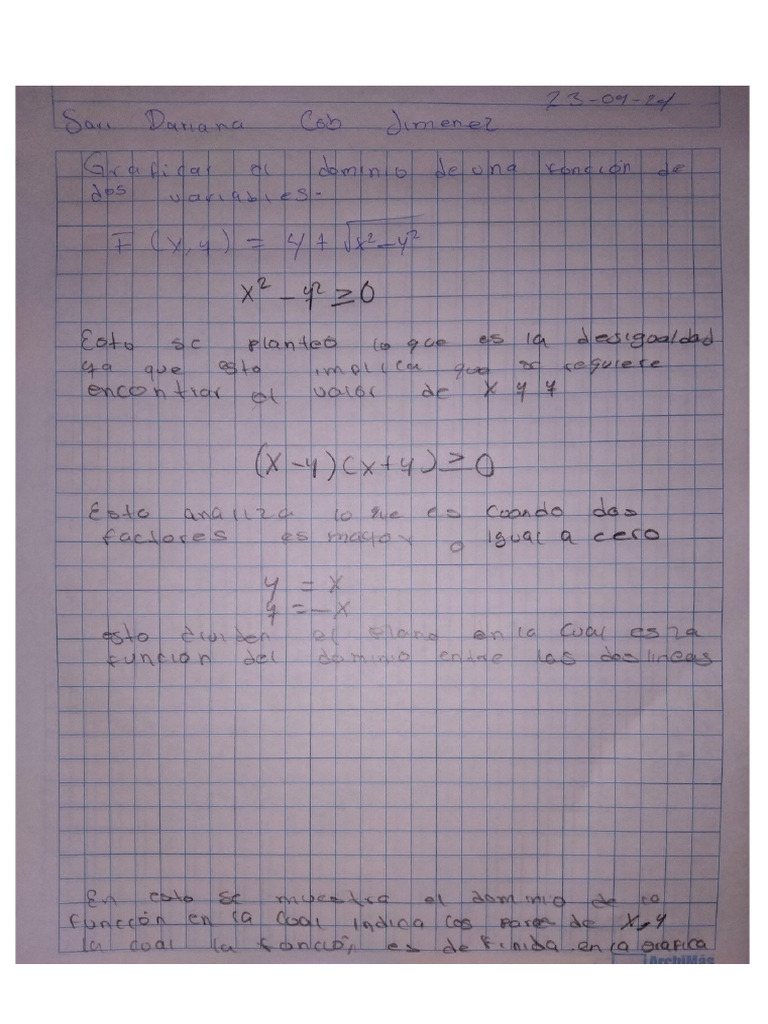 23-09-24
Sari Dariana Cob Jimenez
Graficar el dominio de una función de
dos variables.
F (x, y) = y + √x² - y²
x² - y² ≥ 0
Esto se planteo lo que es la desigualdad
ya que esto implica que se requiere
encontrar el valor de x y y
(x - y) (x + y) ≥ 0
Esto analiza lo que es cuando dos
factores es mayor o igual a cero
y = x
y = -x
esto dividen el plano en la cual esta
función del dominio entre las dos lineas
En esto se muestra el dominio de la
función en la cual indica los pares de x, y
la cual la función es definida en la grafica
ArchiMás